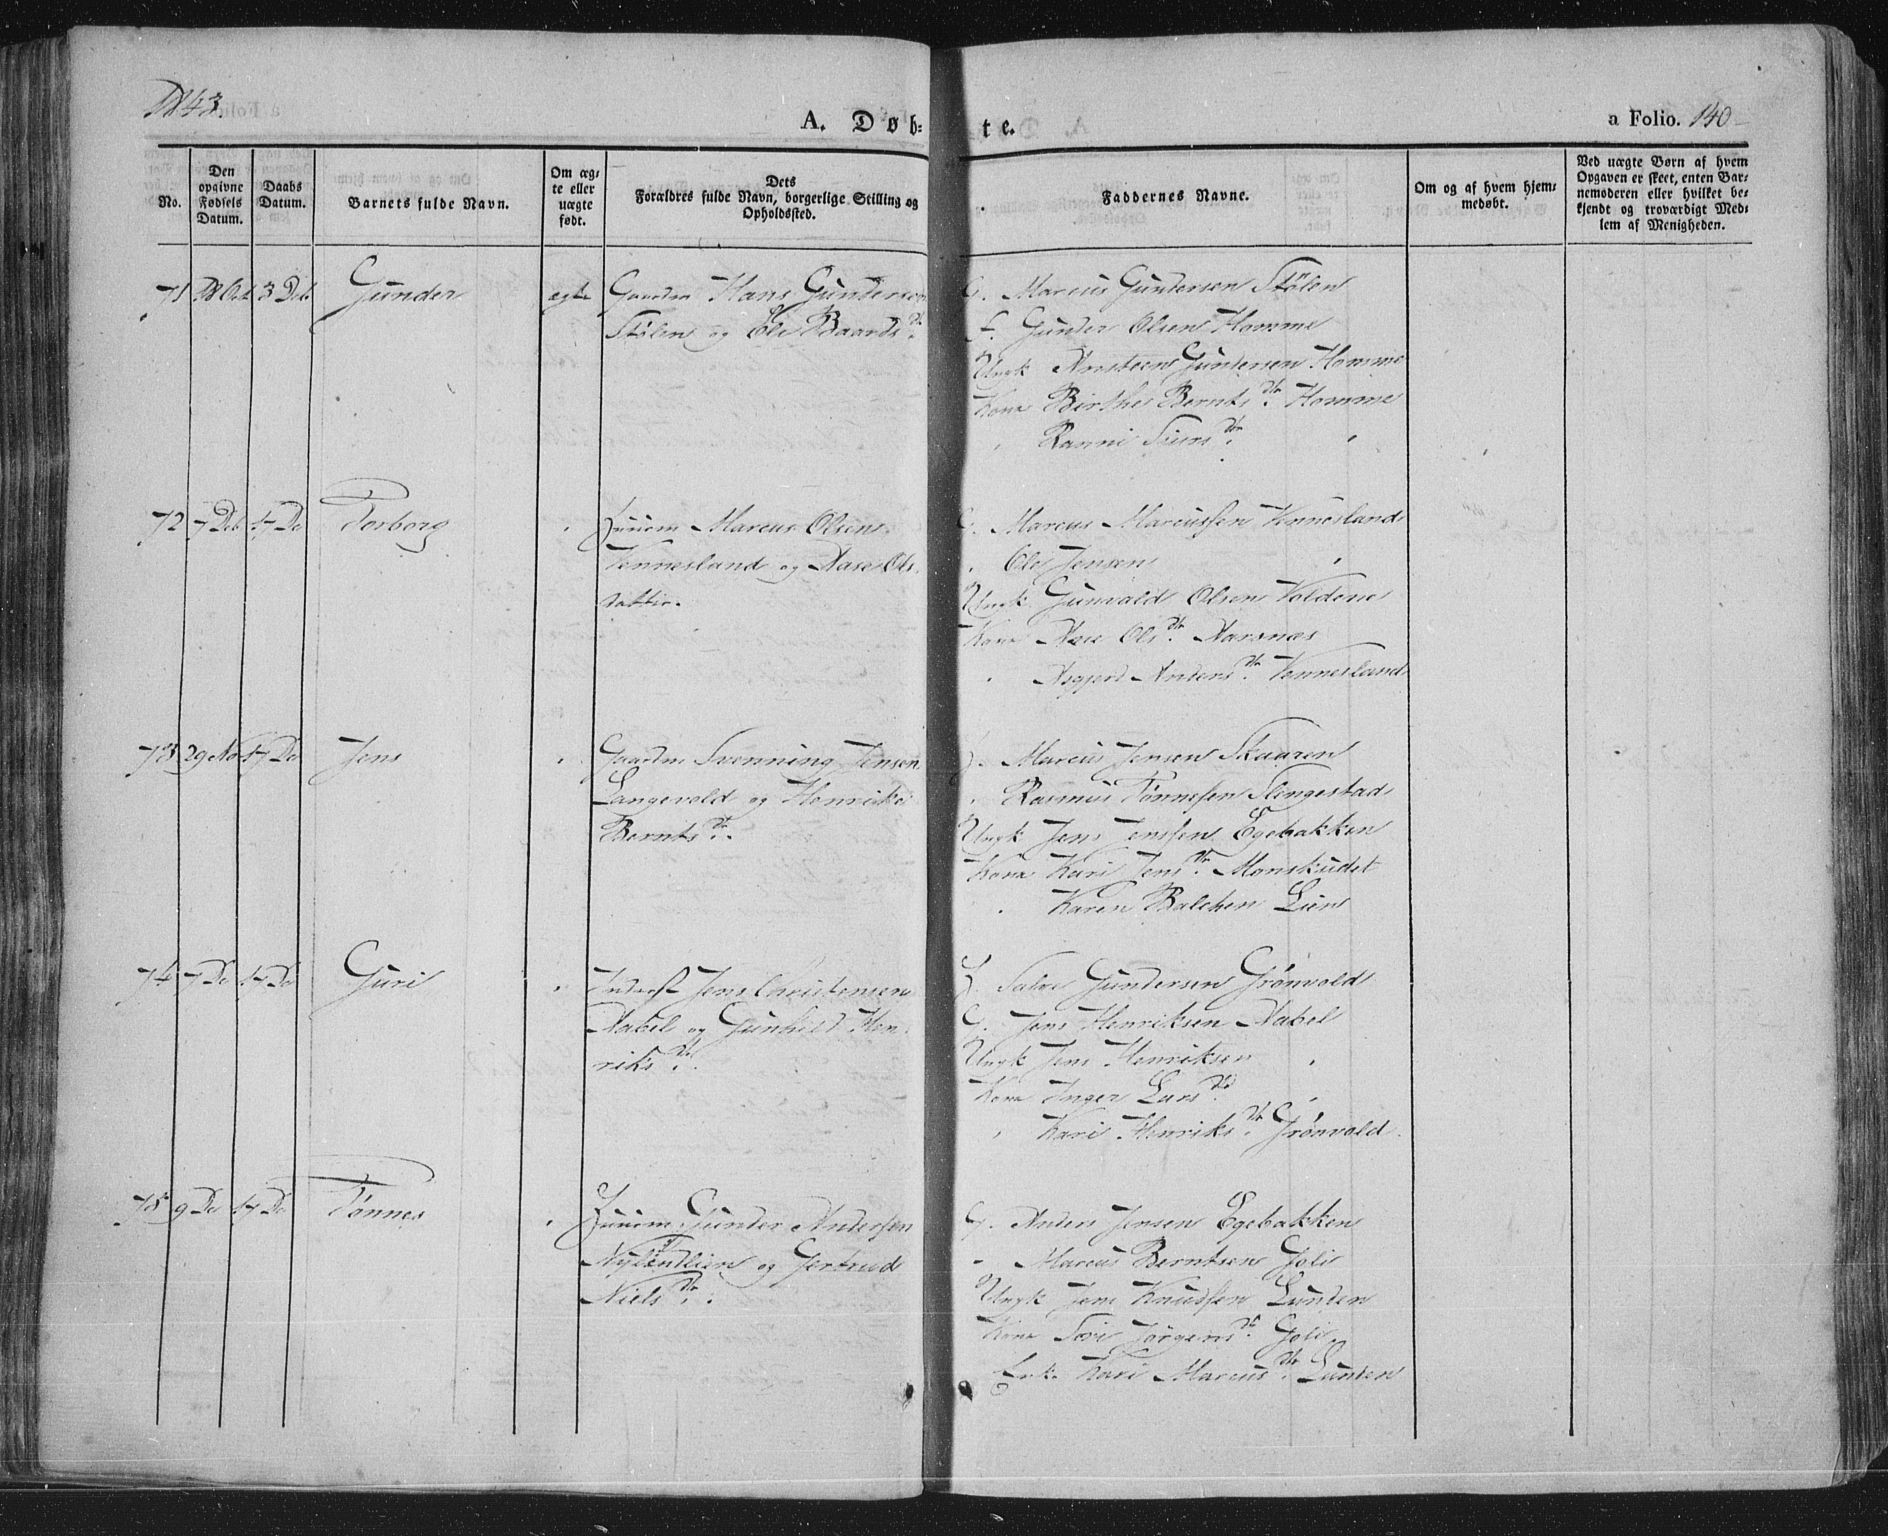 1843.
A. Døb-te.
a Folio. 140
No.
Den opgivne Fødsels Datum.
Daabs Datum.
Barnets fulde Navn.
Om ægte eller uægte født.
Dets Forældres fulde Navn, borgerlige Stilling og Opholdssted.
Faddernes Navne.
Om og af hvem hjemmedøbt.
Ved uægte Børn af hvem Opgaven er skeet, enten Barnemoderen eller hvilket bekjendt og troværdigt Medlem af Menigheden.
71 28 Oct 3 Deb Gunder ægte Gaardm Hans Gundersen
Stølen og Ele Baards Dr.
G. Marcus Gundersen Stølen
F. Gunder Olsen Homme
Ungk Arnsteen Gundersen Homme
Kone Birthe Bernts Dr. Homme
" Ranni Siurs Dr. "
72 7 Deb 17 De Torborg " Huusm Marcus Olsen
Vennesland og Aase Ols
datter.
G. Marcus Marcussen Vennesland
" Ole Jensen "
Ungk Gunvald Olsen Voldene
Kone Aase Ols Dr. Aarsnæs
" Asgjerd Anders Dr. Vennesland
73 29 Nov 17 De Jens " Gaardm Svenning Jensen
Langevold og Henrike
Bernts Dr.
G. Marcus Jensen Skaaren
" Rasmus Tønnesen Slingestad
Ungk Jens Jenssen Egebakken
Kone Kari Jens Dr. Monskudet
" Karen Balchen Lien
74 7 De 17 De Guri " Inderst Jens Christensen
Nabel og Gunhild Hen
riks Dr.
H. Salve Gundersen Grönvold
G. Jens Henriksen Nabel
Ungk Jens Henriksen "
Kone Inger Lars Dr. "
" Kari Henriks Dr. Grönvold.
75 9 De 17 De Tönnes " Huusm. Gunder Andersen
Nylendlien og Gertrud
Niels Dr.
G. Anders Jensen Egebakken
" Marcus Berntsen Goli
Ungk Jens Knudsen Lunden
Kone Siri Jørgens Dr. Goli
Enk. Kari Marcus Dr. Lunden